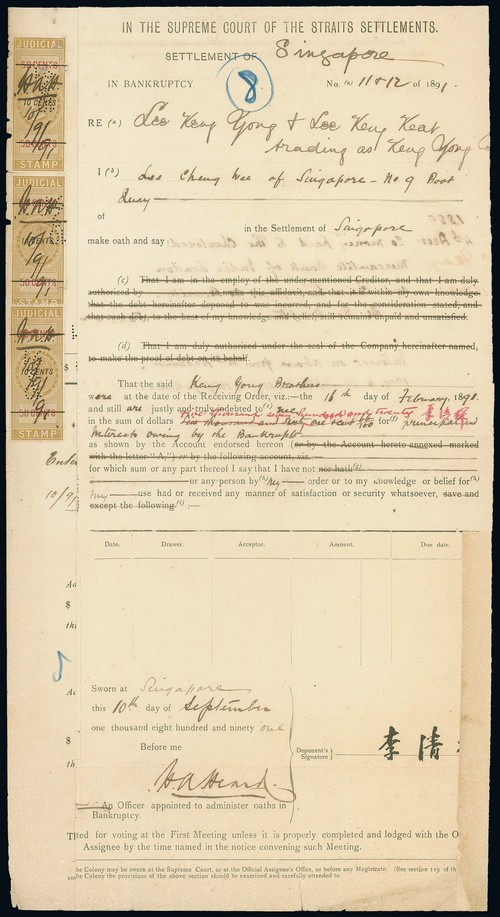 IN THE SUPREME COURT OF THE STRAITS SETTLEMENTS.
SETTLEMENT OF Singapore
8
IN BANKRUPTCY No. (a) 11 & 12 of 1891.
RE (a) Lee Keng Yong & Lee Keng Keat
trading as Keng Yong
I (b) Lee Cheng Wee of Singapore - No. 9 Boat
Quay
of in the Settlement of Singapore
make oath and say
(c) That I am in the employ of the under-mentioned Creditor, and that I am duly
authorised by to make this affidavit, and that it is within my own knowledge
that the debt hereinafter deposed to was incurred, and for the consideration stated, and
that such to the best of my knowledge and belief, still remains unpaid and unsatisfied.
(d) That I am duly authorised under the seal of the Company hereinafter named,
to make the proof of debt on its behalf.
That the said Keng Yong Brothers
were at the date of the Receiving Order, viz.:—the 16th day of February 189
and still are justly and truly indebted to (e) me
in the sum of dollars for (f) principal
Interests owing by the Bankrupts
as shown by the Account endorsed hereon (or by the Account hereto annexed marked
with the letter "A,") or by the following account, viz.:—
for which sum or any part thereof I say that I have not nor hath (g)
or any person by (h) my order or to my knowledge or belief for (h)
my use had or received any manner of satisfaction or security whatsoever, save and
except the following (i) :—
Date. Drawer. Acceptor. Amount. Due date.
Sworn at Singapore
this 10th day of September
one thousand eight hundred and ninety one
Before me
Deponent's Signature 李清
H A Heard
An Officer appointed to administer oaths in
Bankruptcy.
for voting at the First Meeting unless it is properly completed and lodged with the O
Assignee by the time named in the notice convening such Meeting.
he Colony may be sworn at the Supreme Court, or at the Official Assignee's Office, or before any Magistrate. (See section 119 of th
he Colony the provisions of the above section should be examined and carefully attended to.
JUDICIAL
50 CENTS
10 CENTS
STAMP
JUDICIAL
STAMP
JUDICIAL
10 CENTS
STAMP
10/9/